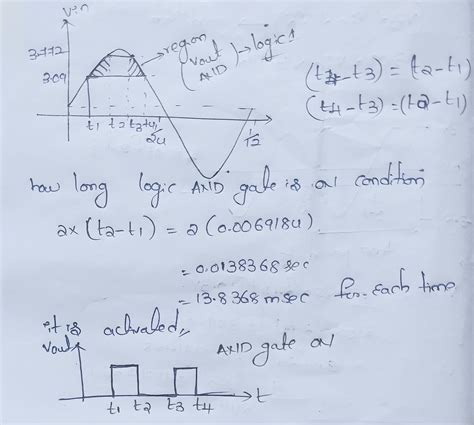 Vin
3.772
3.09
region (Vout AND) → logic 1
(t4-t3) = (t2-t1)
(t4-t3) = (t2-t1)
t1 t2 t3 t4 1/24
1/12
how long logic AND gate is on condition
2x (t2-t1) = 2 (0.0069184)
= 0.0138368 sec
= 13.8368 msec for each time
it is activated,,
Vout
AND gate on
t1 t2 t3 t4 → t